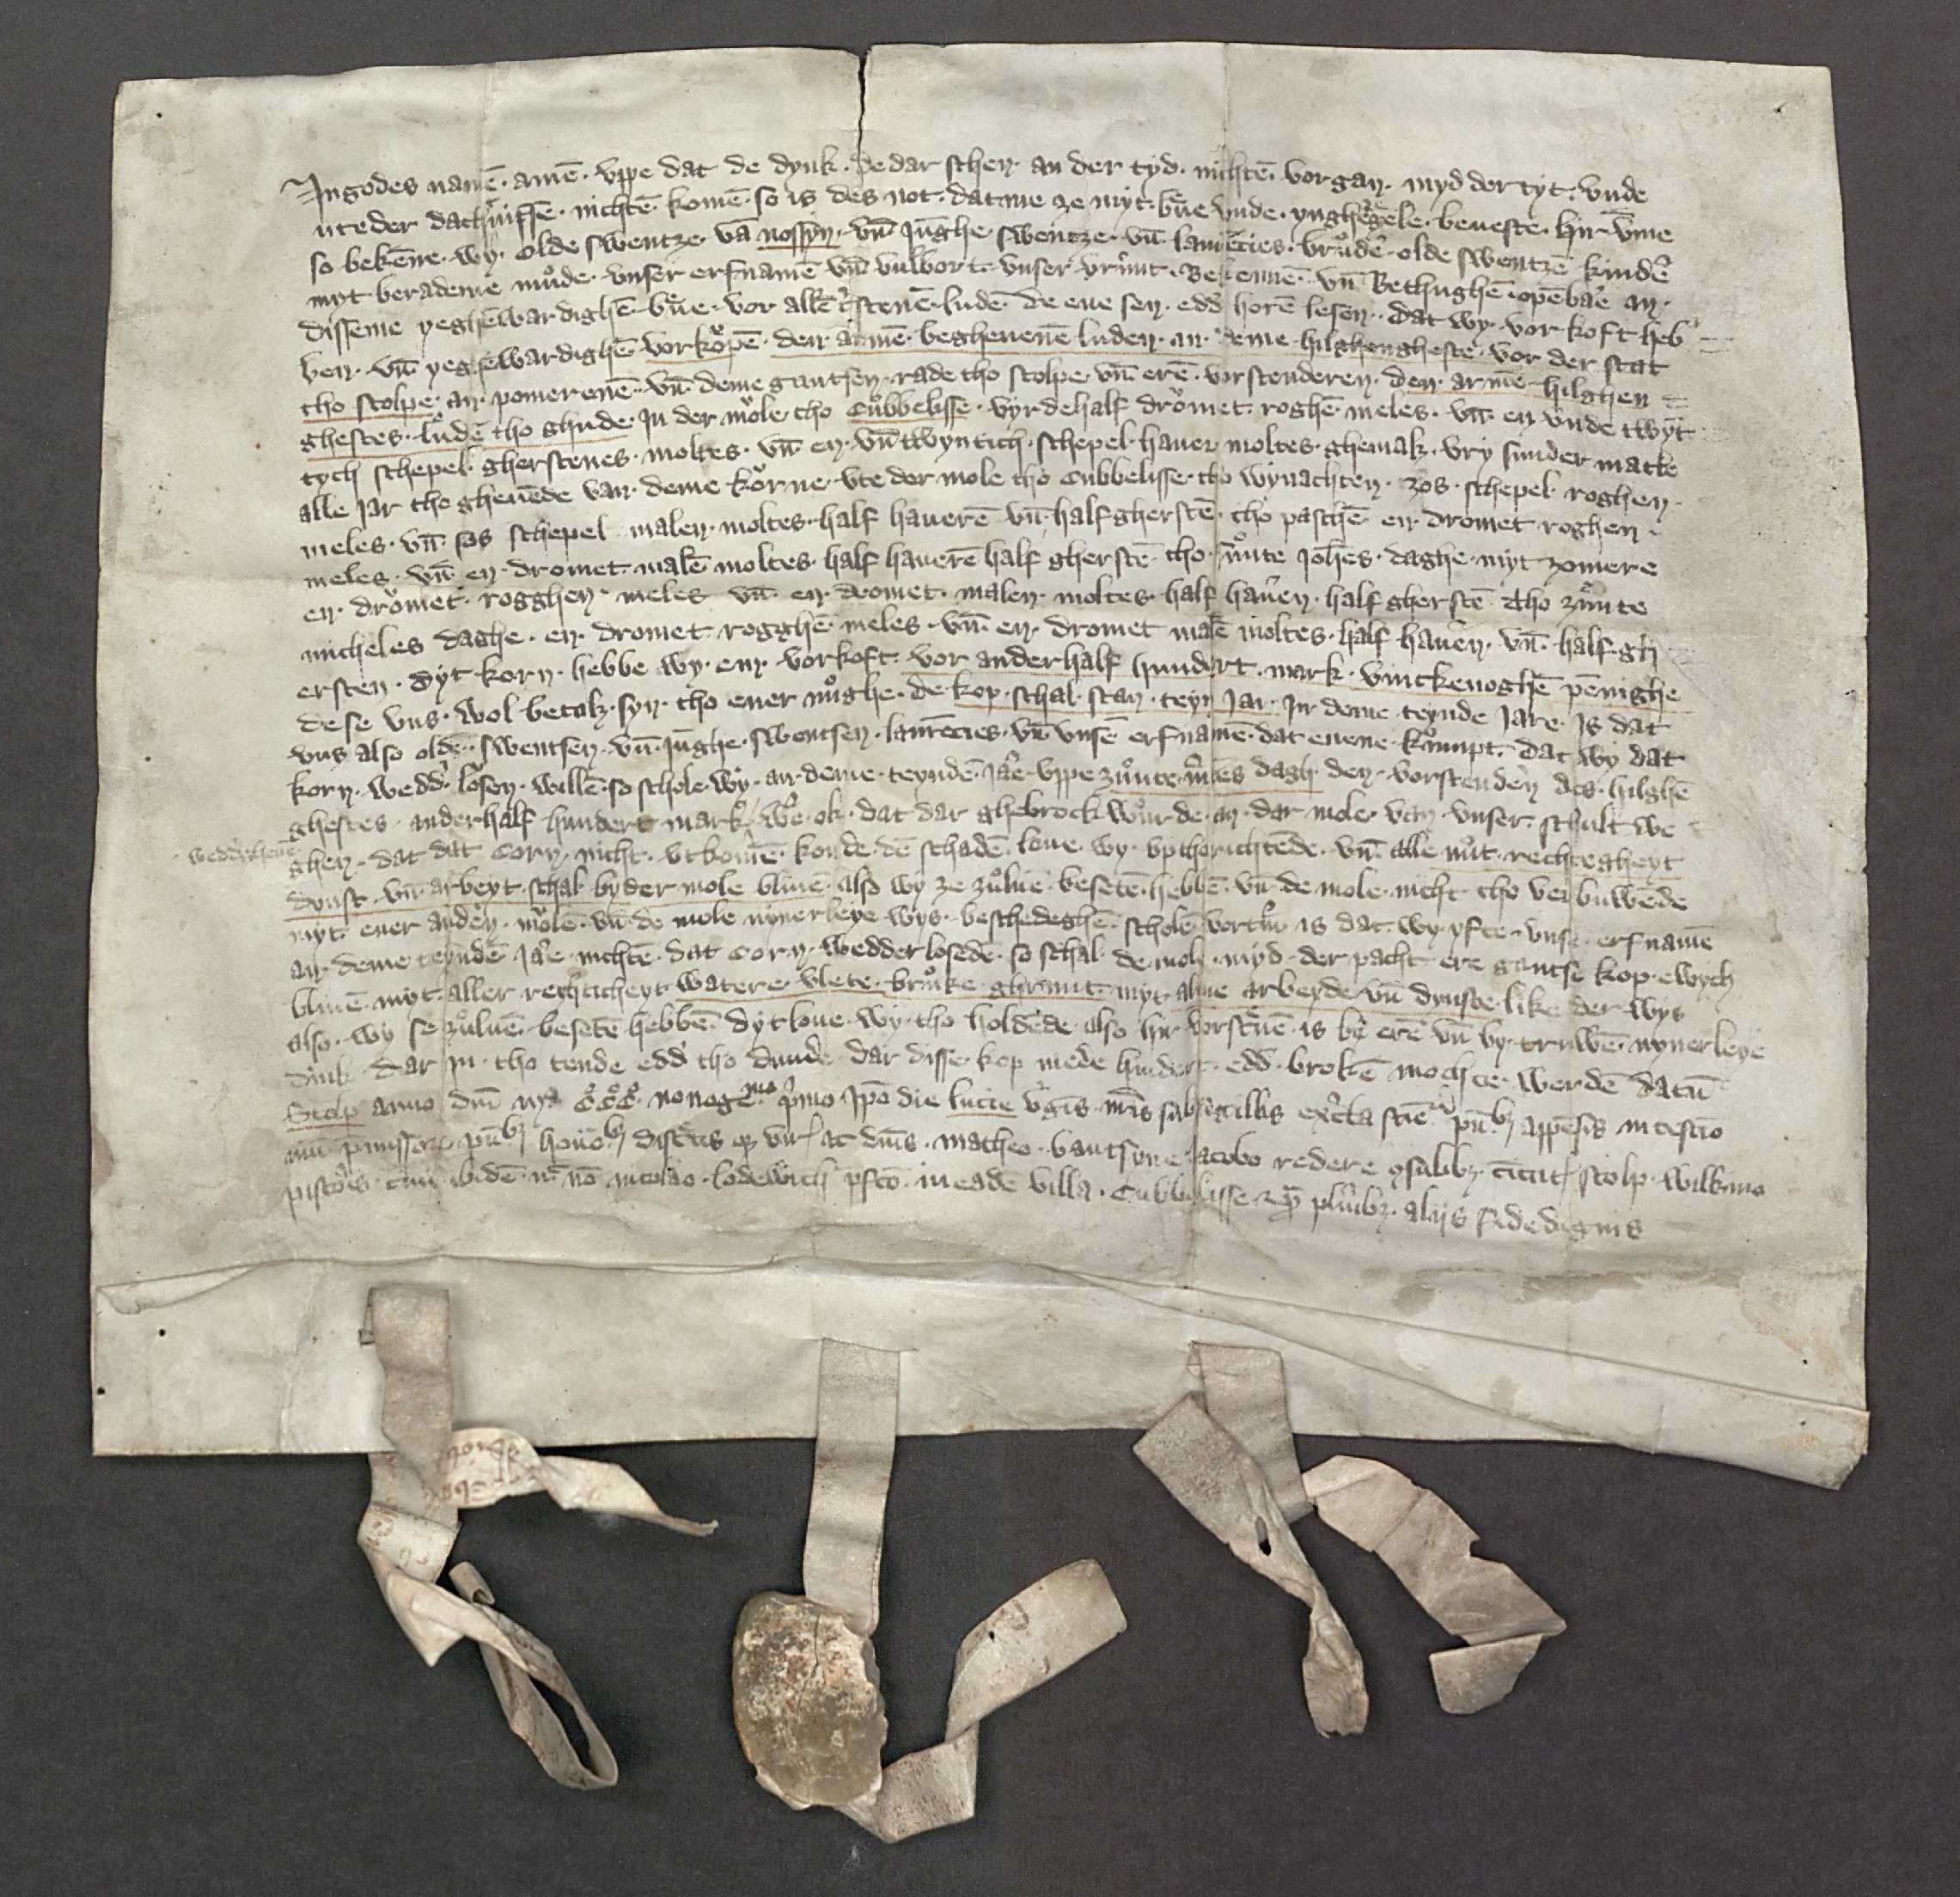 In godes namē · amē · vppe dat de dynk · de dar schen · an der tyd · nichtē vorgan · myd der tyt · vnde
vte der dachtnisse · nichtē komē · so is des not · datme ze myt · breue vnde · ynghezegele · beueste · hir vmme
so bekēne · wy · olde swentze · vā nossyn · vn̄ Junghe swentze · vn̄ laurēcies · brůder · olde swentzē kinder
myt berademe můde · vnser erfnamē vn̄ vulbort · vnser vrunt · Bekennē · vn̄ Bethughē · opēbare an ·
disseme yeghēwardighē breue · vor allē cristenē · ludē · de ene sen · edder horē lesen · dat wy · vorkoft heb
ben · vn̄ yeghēwardighē vorkopē · den armē · begheuenē luden · an · deme · hilghengheste · vor der stat
tho stolpe · an · pomerenē · vn̄ deme gantsen · rade tho stolpe vn̄ erē · vorstenderen · den · armē hilghen
ghestes · ludē tho ghude · In der mole · tho Cubbelisse · vyrdehalf dromet · roghē meles · vn̄ en vnde twyn
tych schepel · gherstenes · moltes · vn̄ en · vn̄ twyntich · schepel · hauer moltes · ghemalz · vry sunder matte
alle jar tho gheuēde van · deme korne · vte der mole tho Cubbelisse · tho wynachten · zos · schepel roghen ·
meles · vn̄ sos schepel malen · moltes · half hauerē vn̄ half gherstē · tho paschē en · dromet roghen ·
meles · vn̄ en · dromet malē moltes · half hauerē half gherstē tho sunte Johēs · daghe · myt zomere
en · dromet · rogghen · meles vn̄ en · dromet · malen · moltes · half hauen · half gherstē Tho zunte
micheles daghe · en · dromet rogghē meles · vn̄ en · dromet malē moltes · half hauen · vn̄ half gh
ersten · dyt korn · hebbe wy · em · vorkoft · vor anderhalf hundert · mark · vinckenoghē pēnighe
dese vns · wol betalz · syn · tho ener nughe · de kop · schal · stan · teyn Jar · In deme teynde Jare · Is dat
vns also oldē swentsen · vn̄ · Junghe · swentsen · laurēcies · vn̄ vnsē erfnamē · dat euene · kumpt · dat wy dat
korn · wedder losen · willē · so schole wy · an deme · teyndē · Jare vppe zunte mertēs dagh den · vorstenden des · hilghē
ghestes · anderhalf hundert mark / were ok · dat dar ghebrock wurde · an · dar mole van · vnser · schult we
weddeheue
ghen · dat dat Corn · nicht · vtkomē · konde · dē schadē · loue · wy · vpthorichtēde · vn̄ alle nut · rechtegheyt
dynst · vn̄ arbeyt · schal · by der mole bliuē · also wy ze zuluē · besetē · hebbē · vn̄ de mole · nicht tho verbuwēde
myt ener anderen · molē · vn̄ de mole nynerleye wys · beschedeghē · scholē vortmer is dat · wy · yfte vnse · erfnamē
an · deme teyndē Jare nichtē · dat Corn · wedder losedē · so schal de mole · myd · der pacht ere gantse kop · ewych
bliuē · myt · aller rechticheyt watere vlete · bruke · ghrunt · myt alme arbeyde vn̄ dynste · like der wys
also · wy se zuluē · besetē hebbē · dyt loue · wy · tho holdēde also hir · vorscreuē · is by erē vn̄ by · truwē · nynerleye
dink · dar in · tho tende edder tho dunde · dar disse kop mede hindert · edder brokē mochte · werdē datū
Stolp anno dni mo CCCo nonagemo primo · Ipō die lucie vgīs · mris sub sigillis excta sciē pūbz appēsis in testio
niū pmissorz · pūbz houebz discrīs qz viris ac dnis · matheo · bantsyne · Jacobo redere ꝯsulibz · ciuitatis stolp · wilkino
pistoris · cum ibidē nec nō nicolao · lodewich pfcō · in eadē villa · Cubbelisse et plūibz · alijs fidedignis